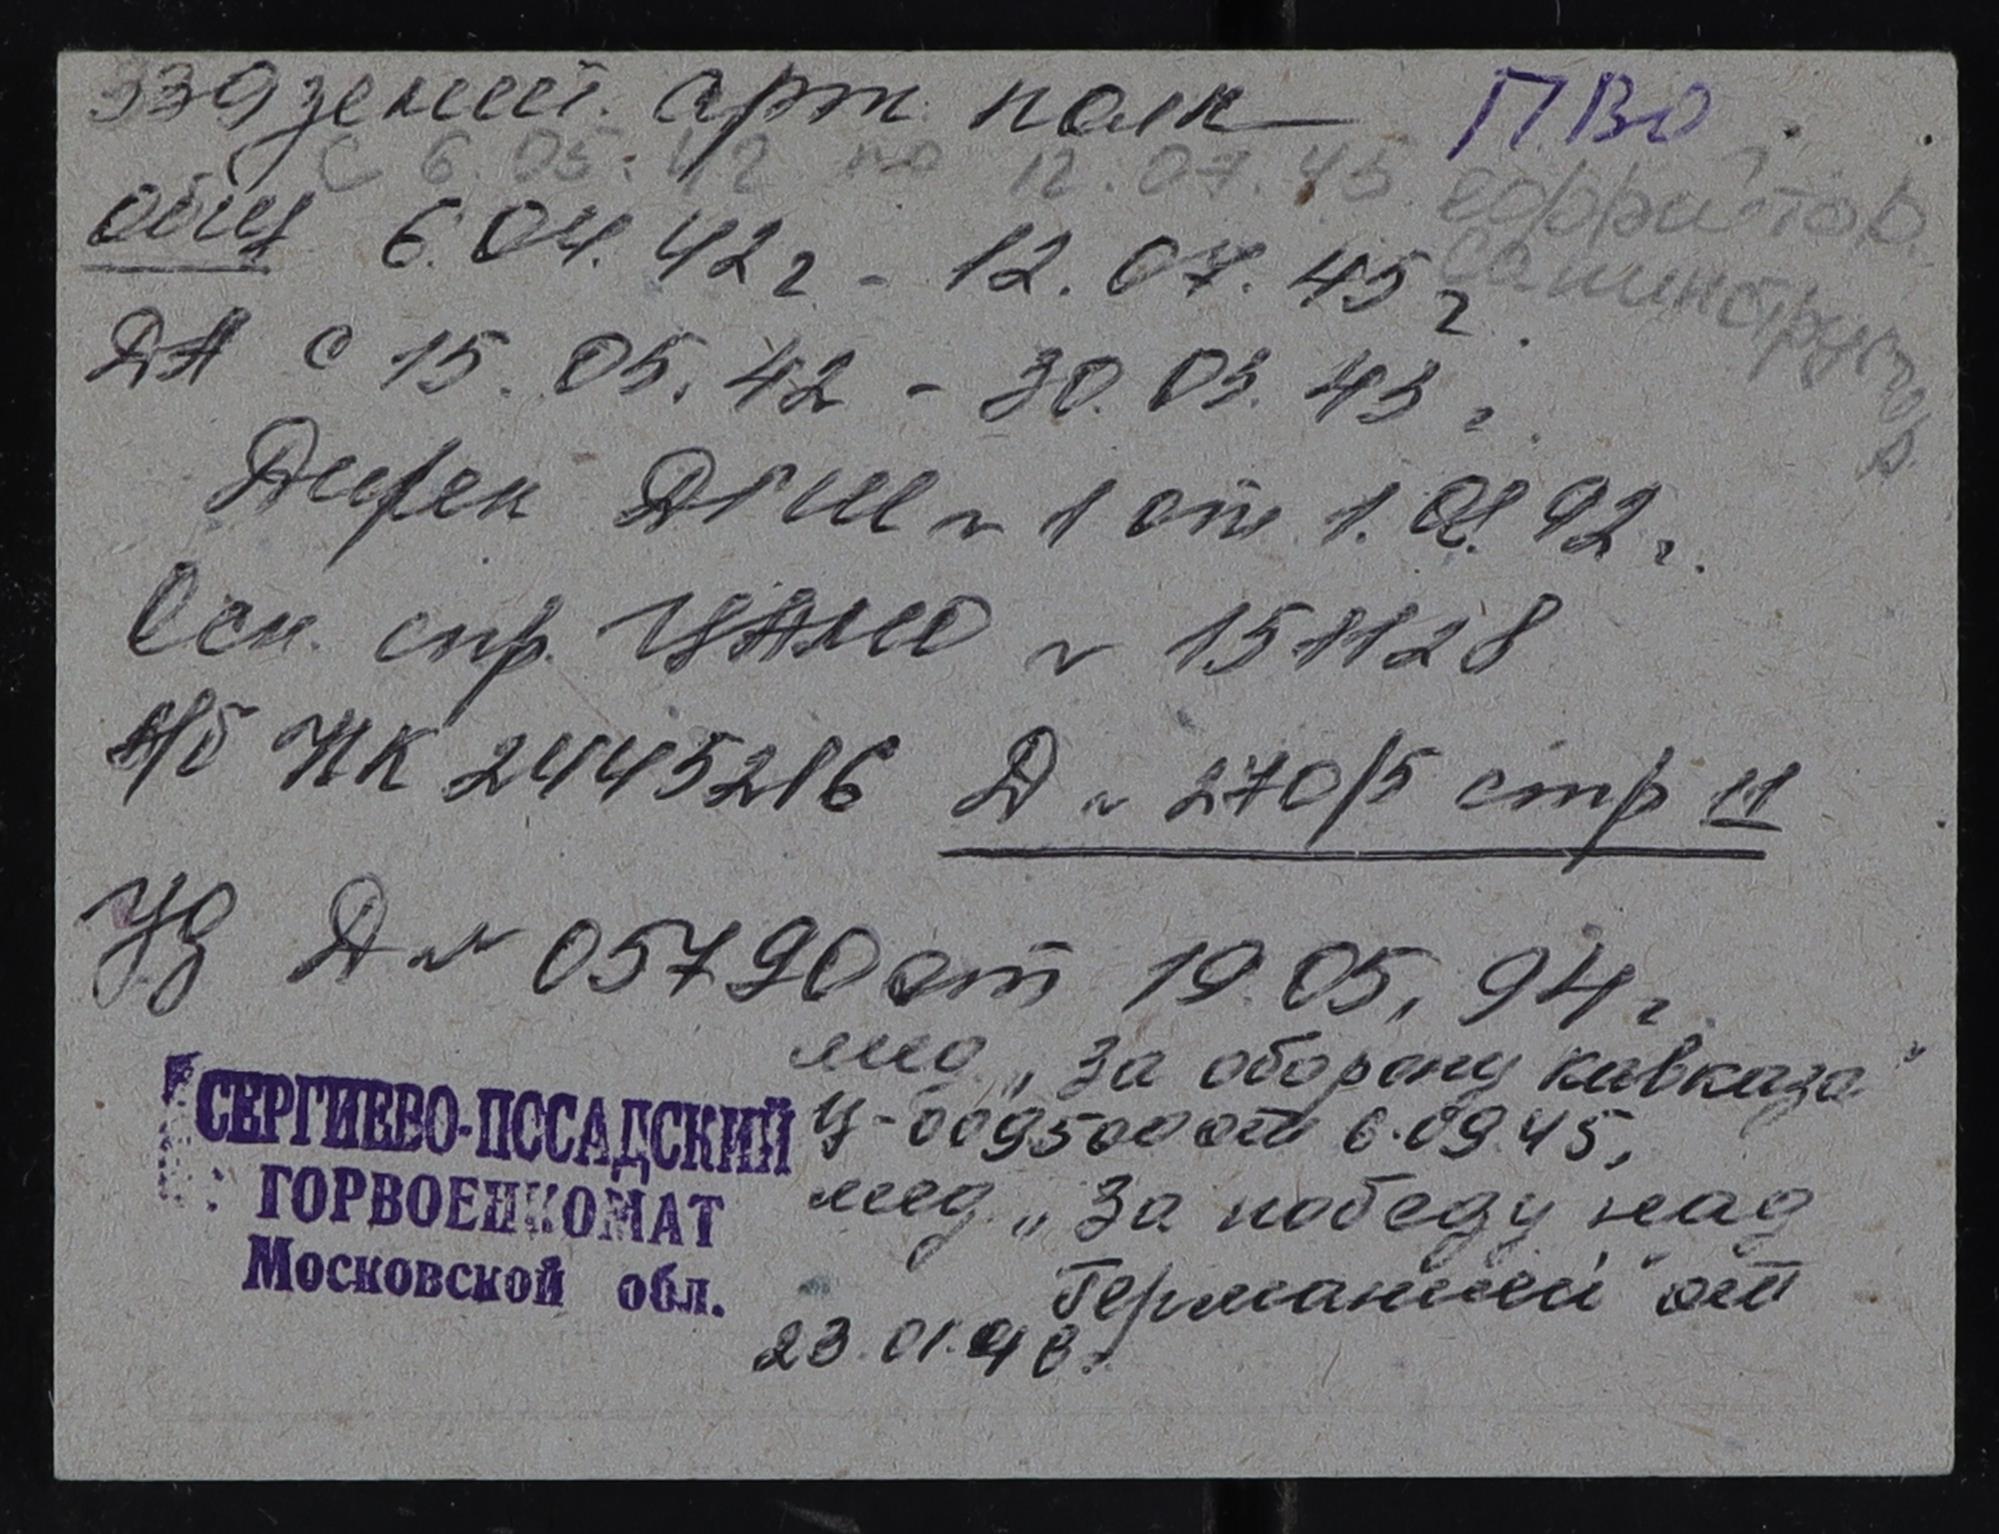 339 зенит. арт. полк ПВО
с 6.05.42 по 12.07.45 ефрейтор
общ 6.04.42г - 12.07.45г. санинструктор
ДА с 15.05.42 - 30.03.43г.
Дирек ДГШ № 1 от 1.01.92г.
Осн. спр. ЦАМО № 151128
в/б НК 2445216 Д № 270/5 стр 11
Уд Д № 05790 от 19.05.94г.
мед „За оборону кавказа"
Ц-009500 от 6.09.45,
мед „За победу над
Германией" от
23.01.46г.
СЕРГИЕВО-ПОСАДСКИЙ
ГОРВОЕНКОМАТ
Московской обл.